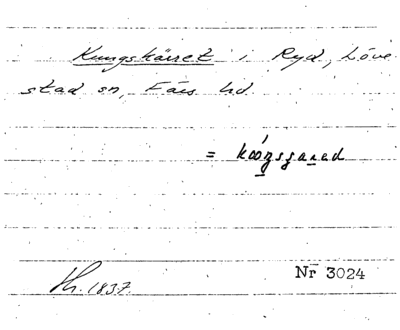 Kungskärret i Ryd, Löve-
stad sn, Färs hd.
=
Nr 3024